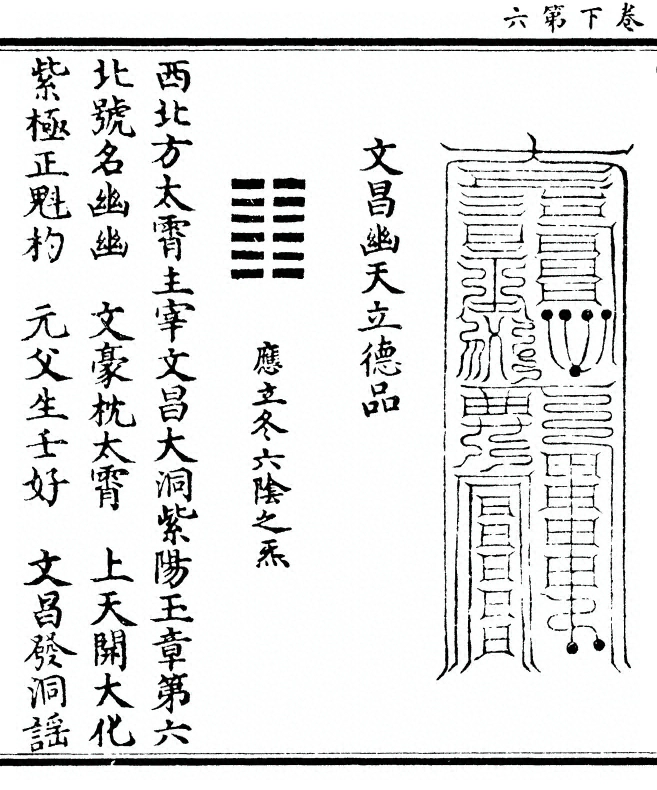 卷下第六
文昌幽天立德品
應立冬六陰之炁
西北方太霄主宰文昌大洞紫陽王章第六
北號名幽幽　文豪枕太霄　上天開大化
紫極正魁杓　元父生壬好　文昌發洞謠